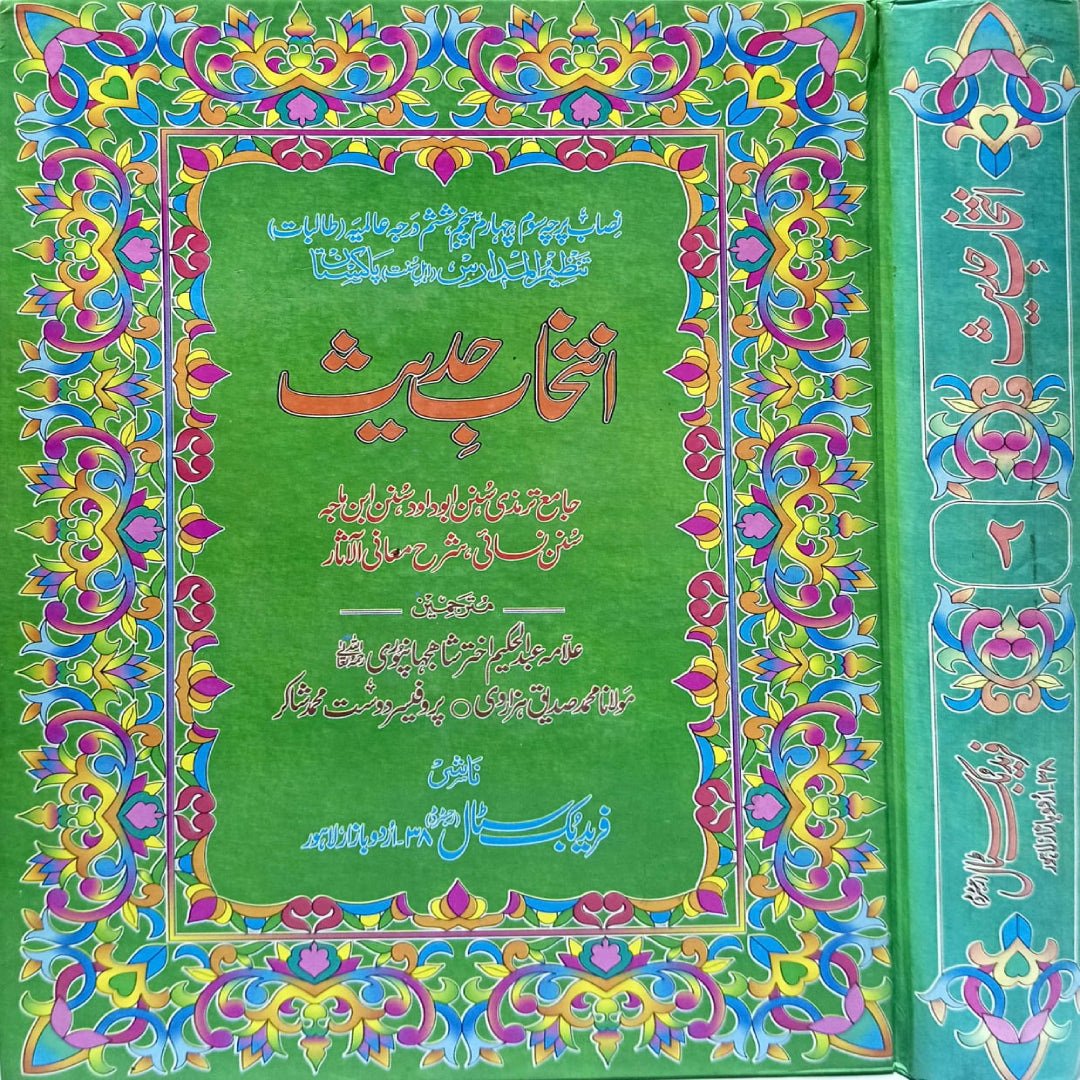 نصاب پرچہ سوم، چہارم، پنجم، ششم درجہ عالمیہ (طالبات)
تنظیم المدارس (اہل سنت) پاکستان
انتخابِ حدیث
جامع ترمذی، سُنن ابوداود، سُنن ابن ماجہ
سُنن نسائی، شرح معانی الآثار
مترجمین
علّامہ عبدالحکیم اختر شاہجہانپوری رحمۃ اللہ تعالیٰ
مولانا محمد صدیق ہزاروی ○ پروفیسر دوست محمد شاکر
ناشر
فرید بک سٹال (رجسٹرڈ) ۳۸۔اُردو بازار لاہور
انتخابِ حدیث
۲
فرید بک سٹال (رجسٹرڈ)
۳۸۔اُردو بازار لاہور